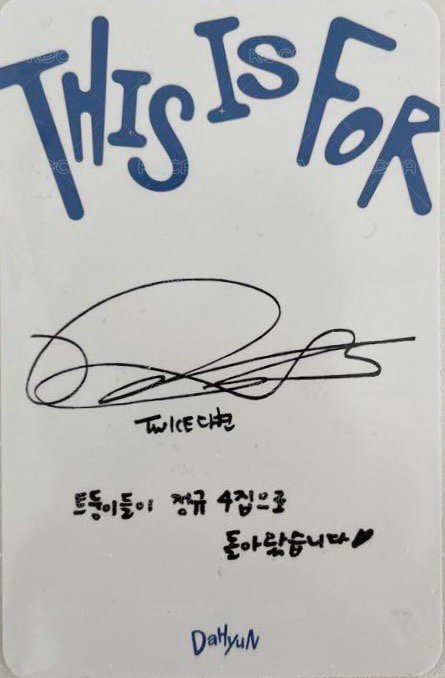 THIS IS FOR
TWICE다현
트둥이들이 정규 4집으로
돌아왔습니다♥
DaHyuN